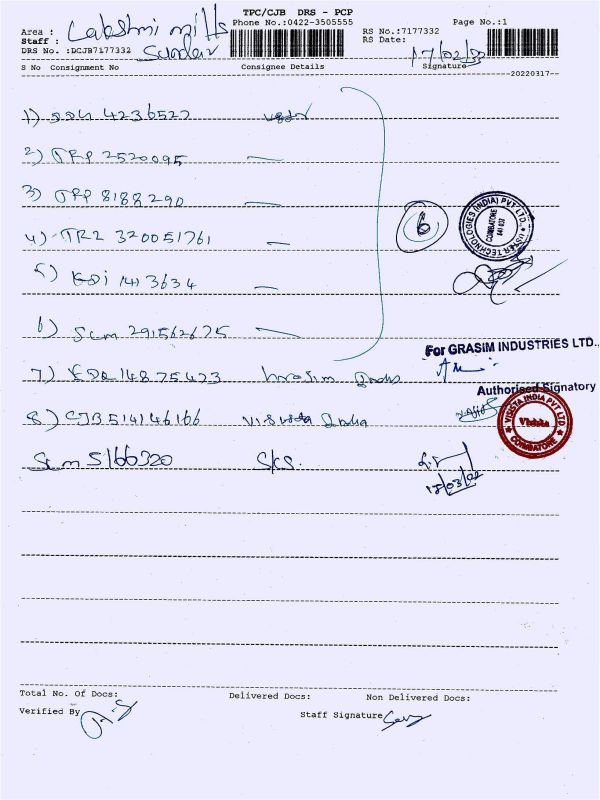 TPC/CJB DRS - PCP
Area : Lakshmi mills Phone No.:0422-3505555 RS No.:7177332 Page No.:1
Staff : Sundar RS Date: 17/02/22
DRS No. :DCJB7177332
S No Consignment No Consignee Details Signature
20220317--
1) 4236522
2) TRP 2520095
3) TRP 8188290
4) TR2 320051761
5) EDI 1413634
6) Scm 291562675
6
USHER TECHNOLOGIES (INDIA) PVT LTD.,
COIMBATORE
641 037
For GRASIM INDUSTRIES LTD.,
7) 14875423 Grasim Inds
Authorised Signatory
8) CJB514146166 Visista India
VISISTA INDIA PVT LTD
Visista
COIMBATORE
Scm 5166320 SKS.
18/03/22
Total No. Of Docs: Delivered Docs: Non Delivered Docs:
Verified By Staff Signature